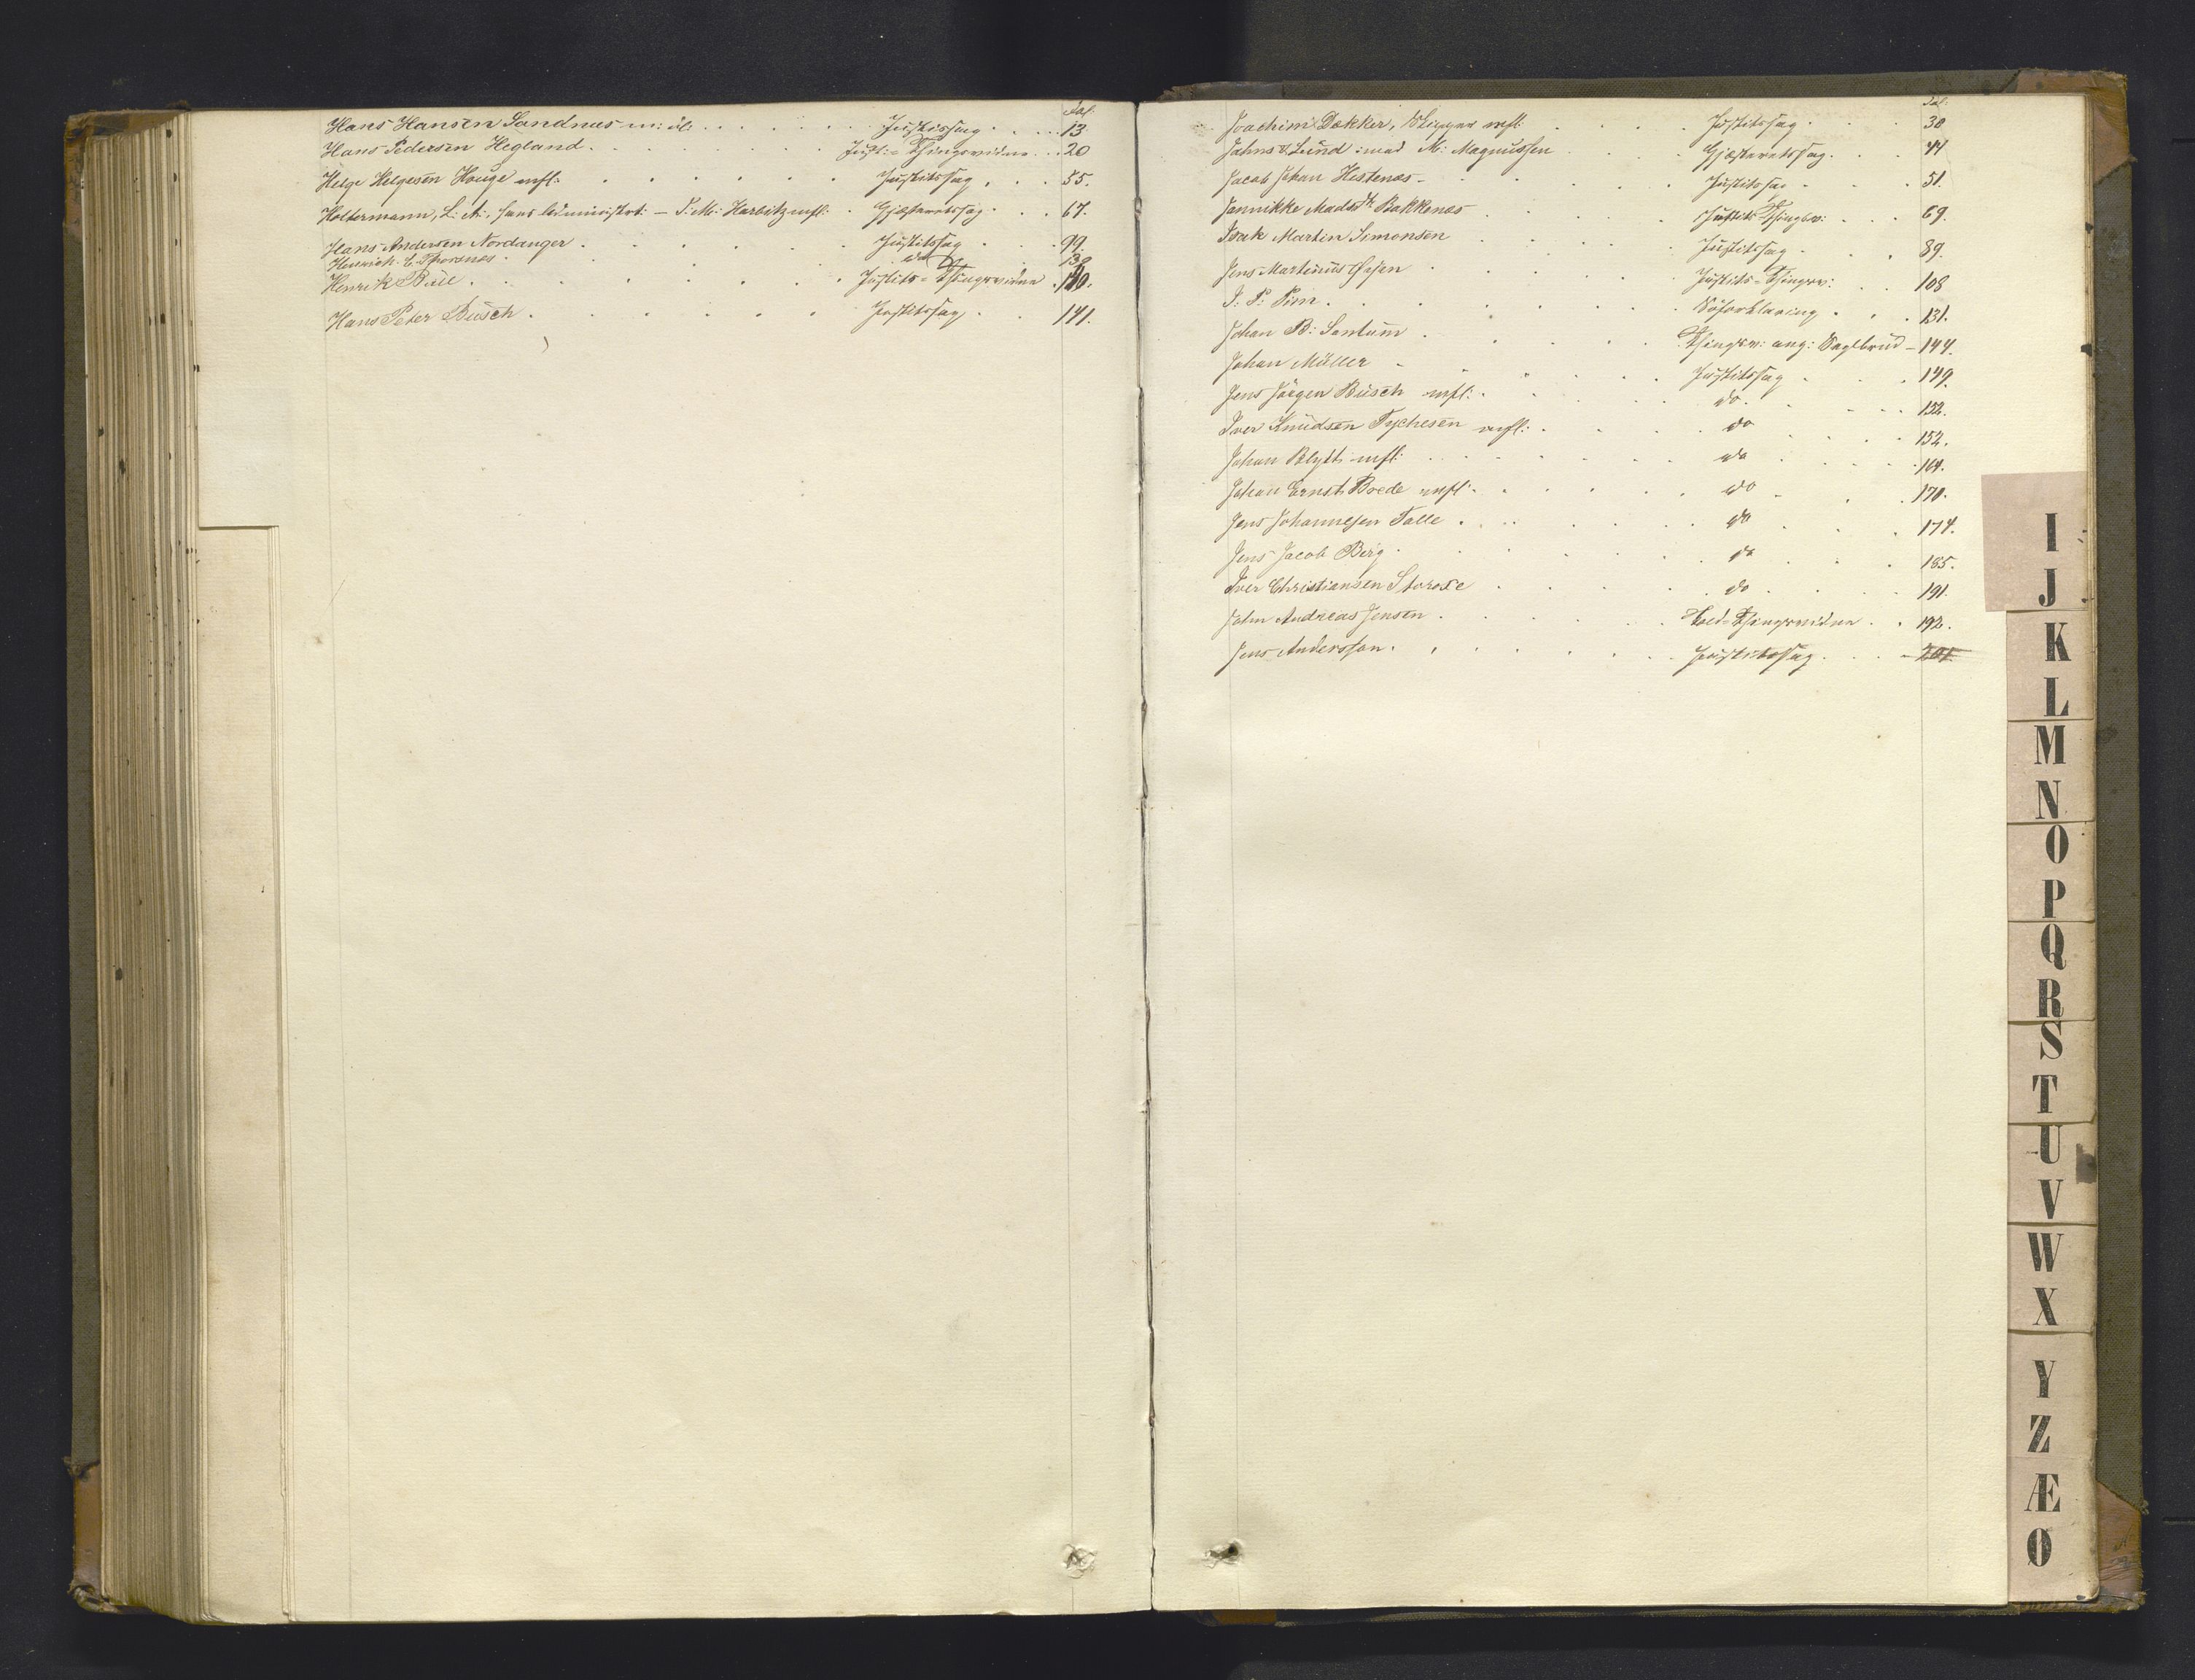 Fol:
Hans Hansen Sandnæs m: fl: Justitssag 13
Hans Pedersen Hegland Just:- Thingsvidne 20
Helge Helgesen Houge mfl: Justitssag 55.
Holtermann, L: A:, hans Administrt: – P: M: Harbitz mfl: Gjæsteretssag 67.
Hans Andersen Nordanger Justitssag 99.
Henrich E. Thorsnæs do 130
Henrik Bull Justits- Thingsvidne 140.
Hans Peter Büsch Justitssag 141.
Fol:
Joachim Dekker, Skipper mfl: Justitssag 30
Jahns & Lund mod M: Magnussen Gjæsteretssag 44
Jacob Johan Hestenæs Justitssag 51.
Jannikke Madsdtr Bakkenæs Justits Thingsv: 69.
Isak Martin Simonsen Justitssag 89.
Jens Martinus Olsen Justits- Thingsv: 108
J: P: Søforklaring 131.
Johan B: Santum Thingsv: ang: Vaglbrud 144.
Johan Müller Justitssag 149.
Jens Jørgen Büsch mfl: do 152.
Iver Knudsen Tychesen mfl: do 152.
Johan Blytt mfl: do 164.
Johan Ernst Brede mfl: do 170.
Jens Johannesen Talle do 174.
Jens Jacob Berg do 185.
Iver Christiansen Storøse do 191.
John Andreas Jensen Thingsvidne 192.
Jens Andersson Justitssag 201
I
J
K
L
M
N
O
P
Q
R
S
T
U
V
W
X
Y
Z
Æ
Ø